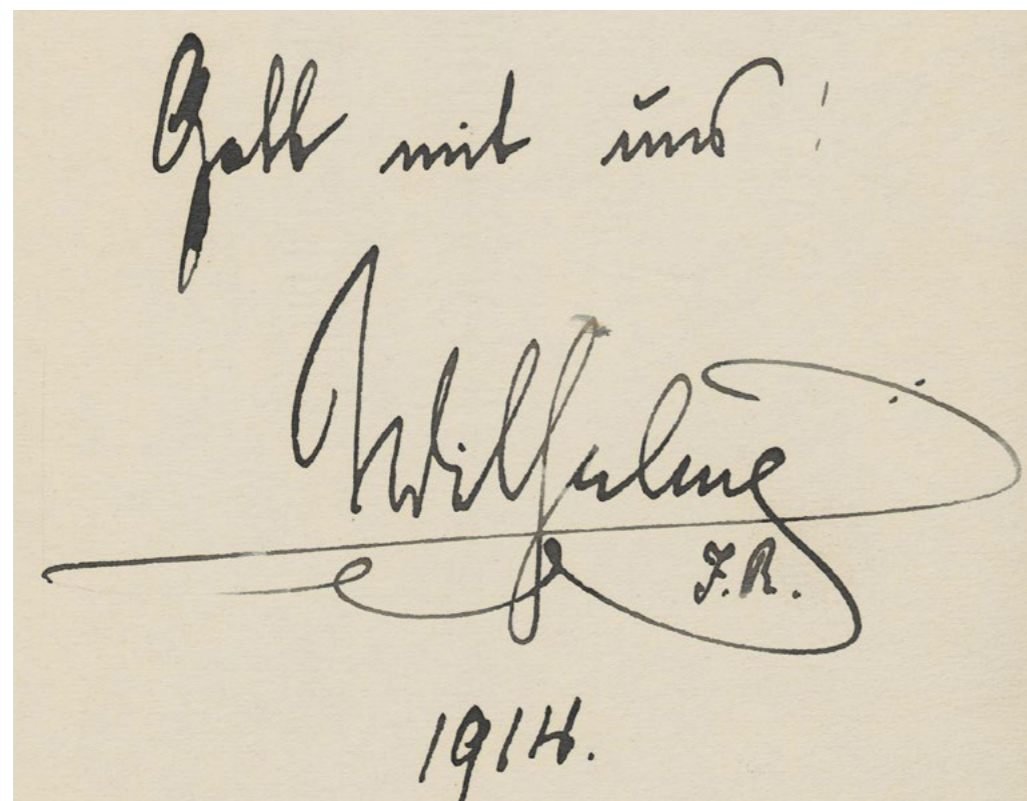 Gott mit uns!
Wilhelm
I.R.
1914.